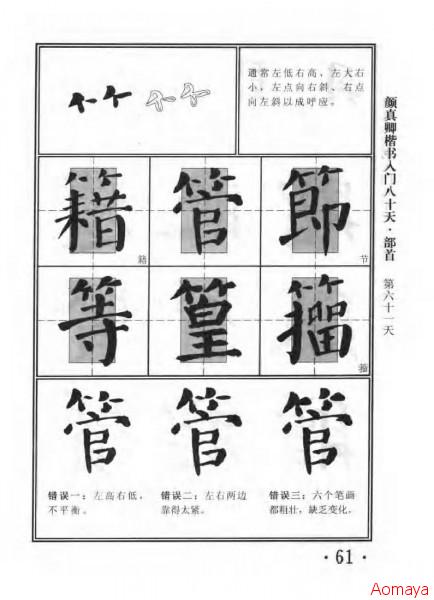 ⺮
通常左低右高、左大右
小，左点向右斜、右点
向左斜以成呼应。
籍 管 節
籍 节
等 篁 籀
籀
管 管 管
错误一：左高右低，
不平衡。
错误二：左右两边
靠得太紧。
错误三：六个笔画
都粗壮，缺乏变化。
颜真卿楷书入门八十天·部首
第六十一天
·61·
Aomaya